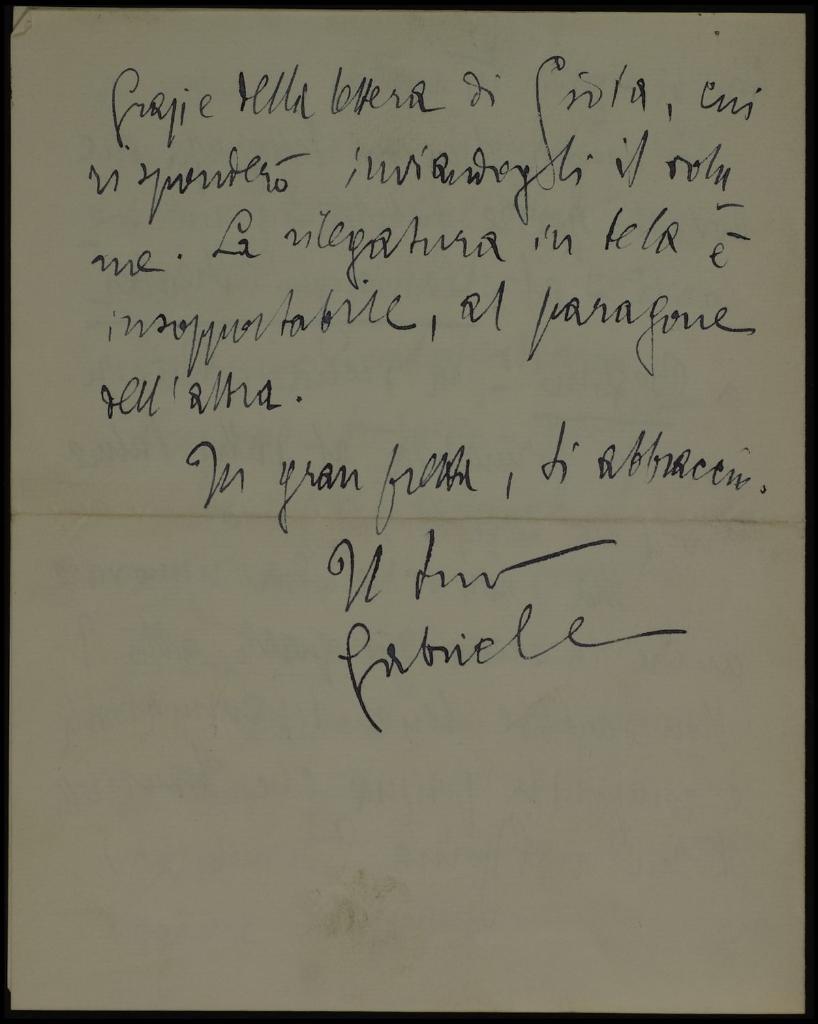 Grazie della lettera di Gioia, cui
risponderò inviandogli il volu
me. La rilegatura in tela è
insopportabile, al paragone
dell'altra.
In gran fretta, ti abbraccio.
Il tuo
Gabriele